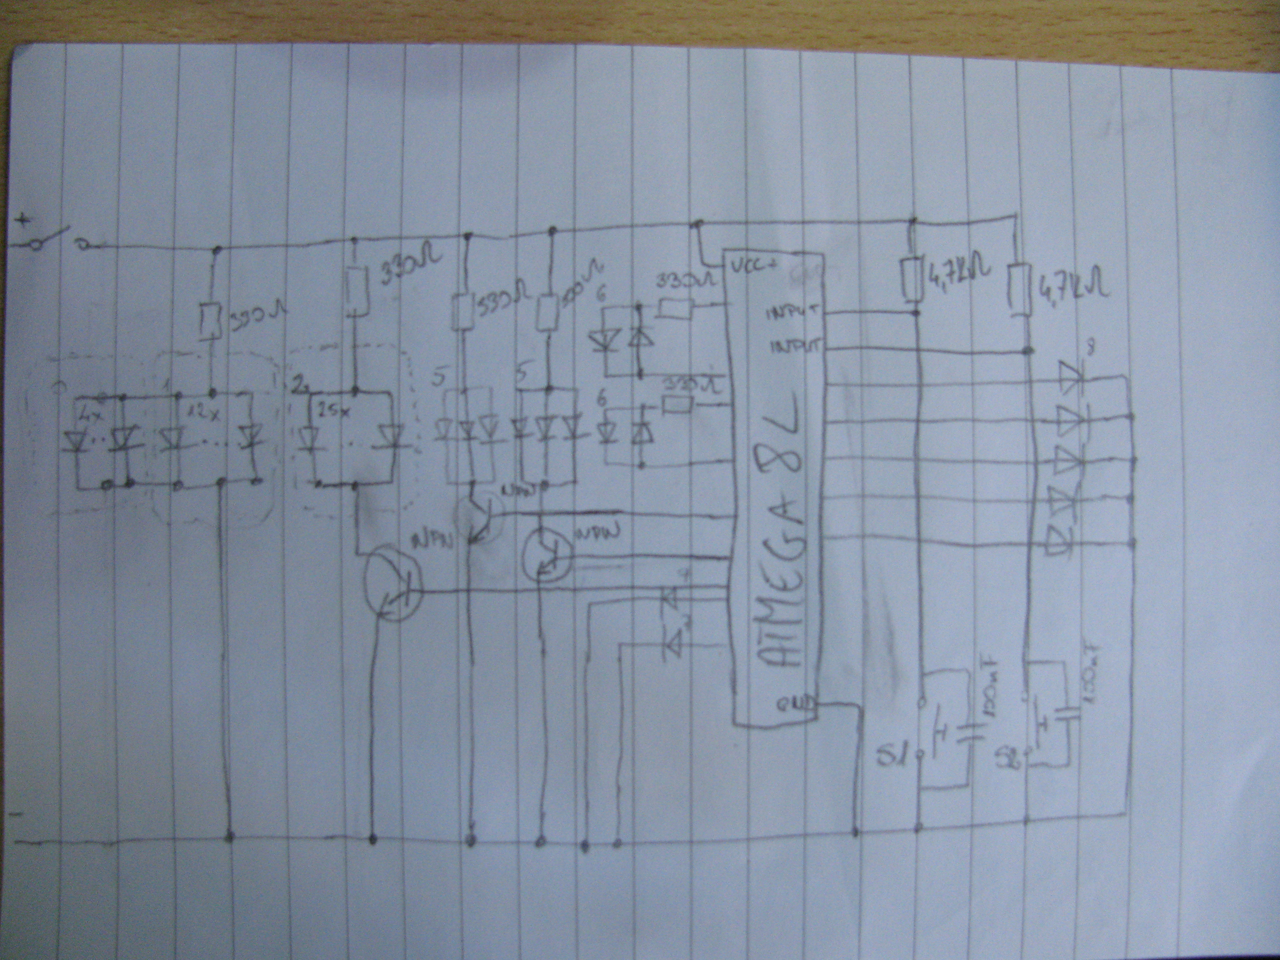 +
330Ω
330Ω
VCC+
4,7KΩ
4,7KΩ
330Ω
6
INPUT
INPUT
8
1
2
4x
12x
25x
5
5
330Ω
6
NPN
NPN
NPN
ATMEGA 8L
GND
S1
100nF
S2
100nF
-